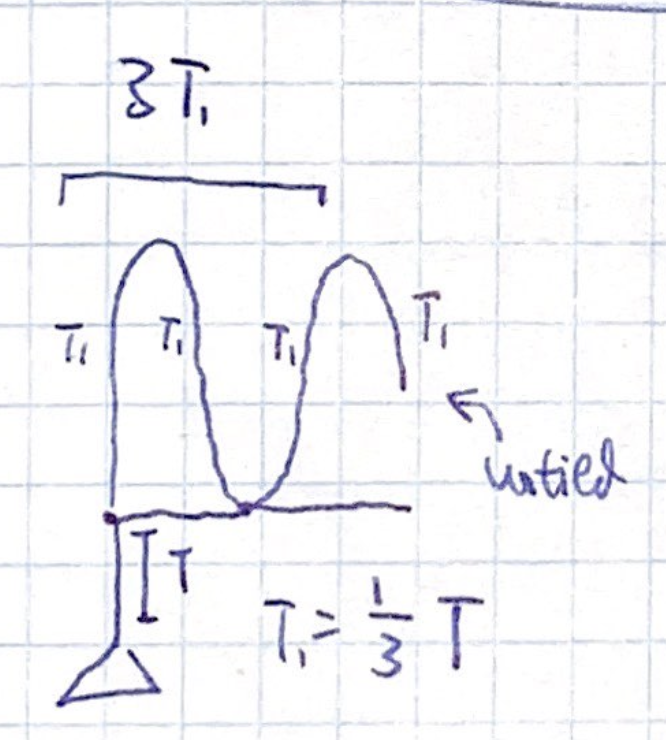 3T₁
T₁ T₁ T₁ T₁
untied
T
T₁ = 1/3 T